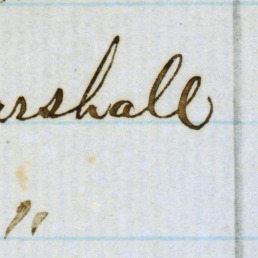 arshall
"